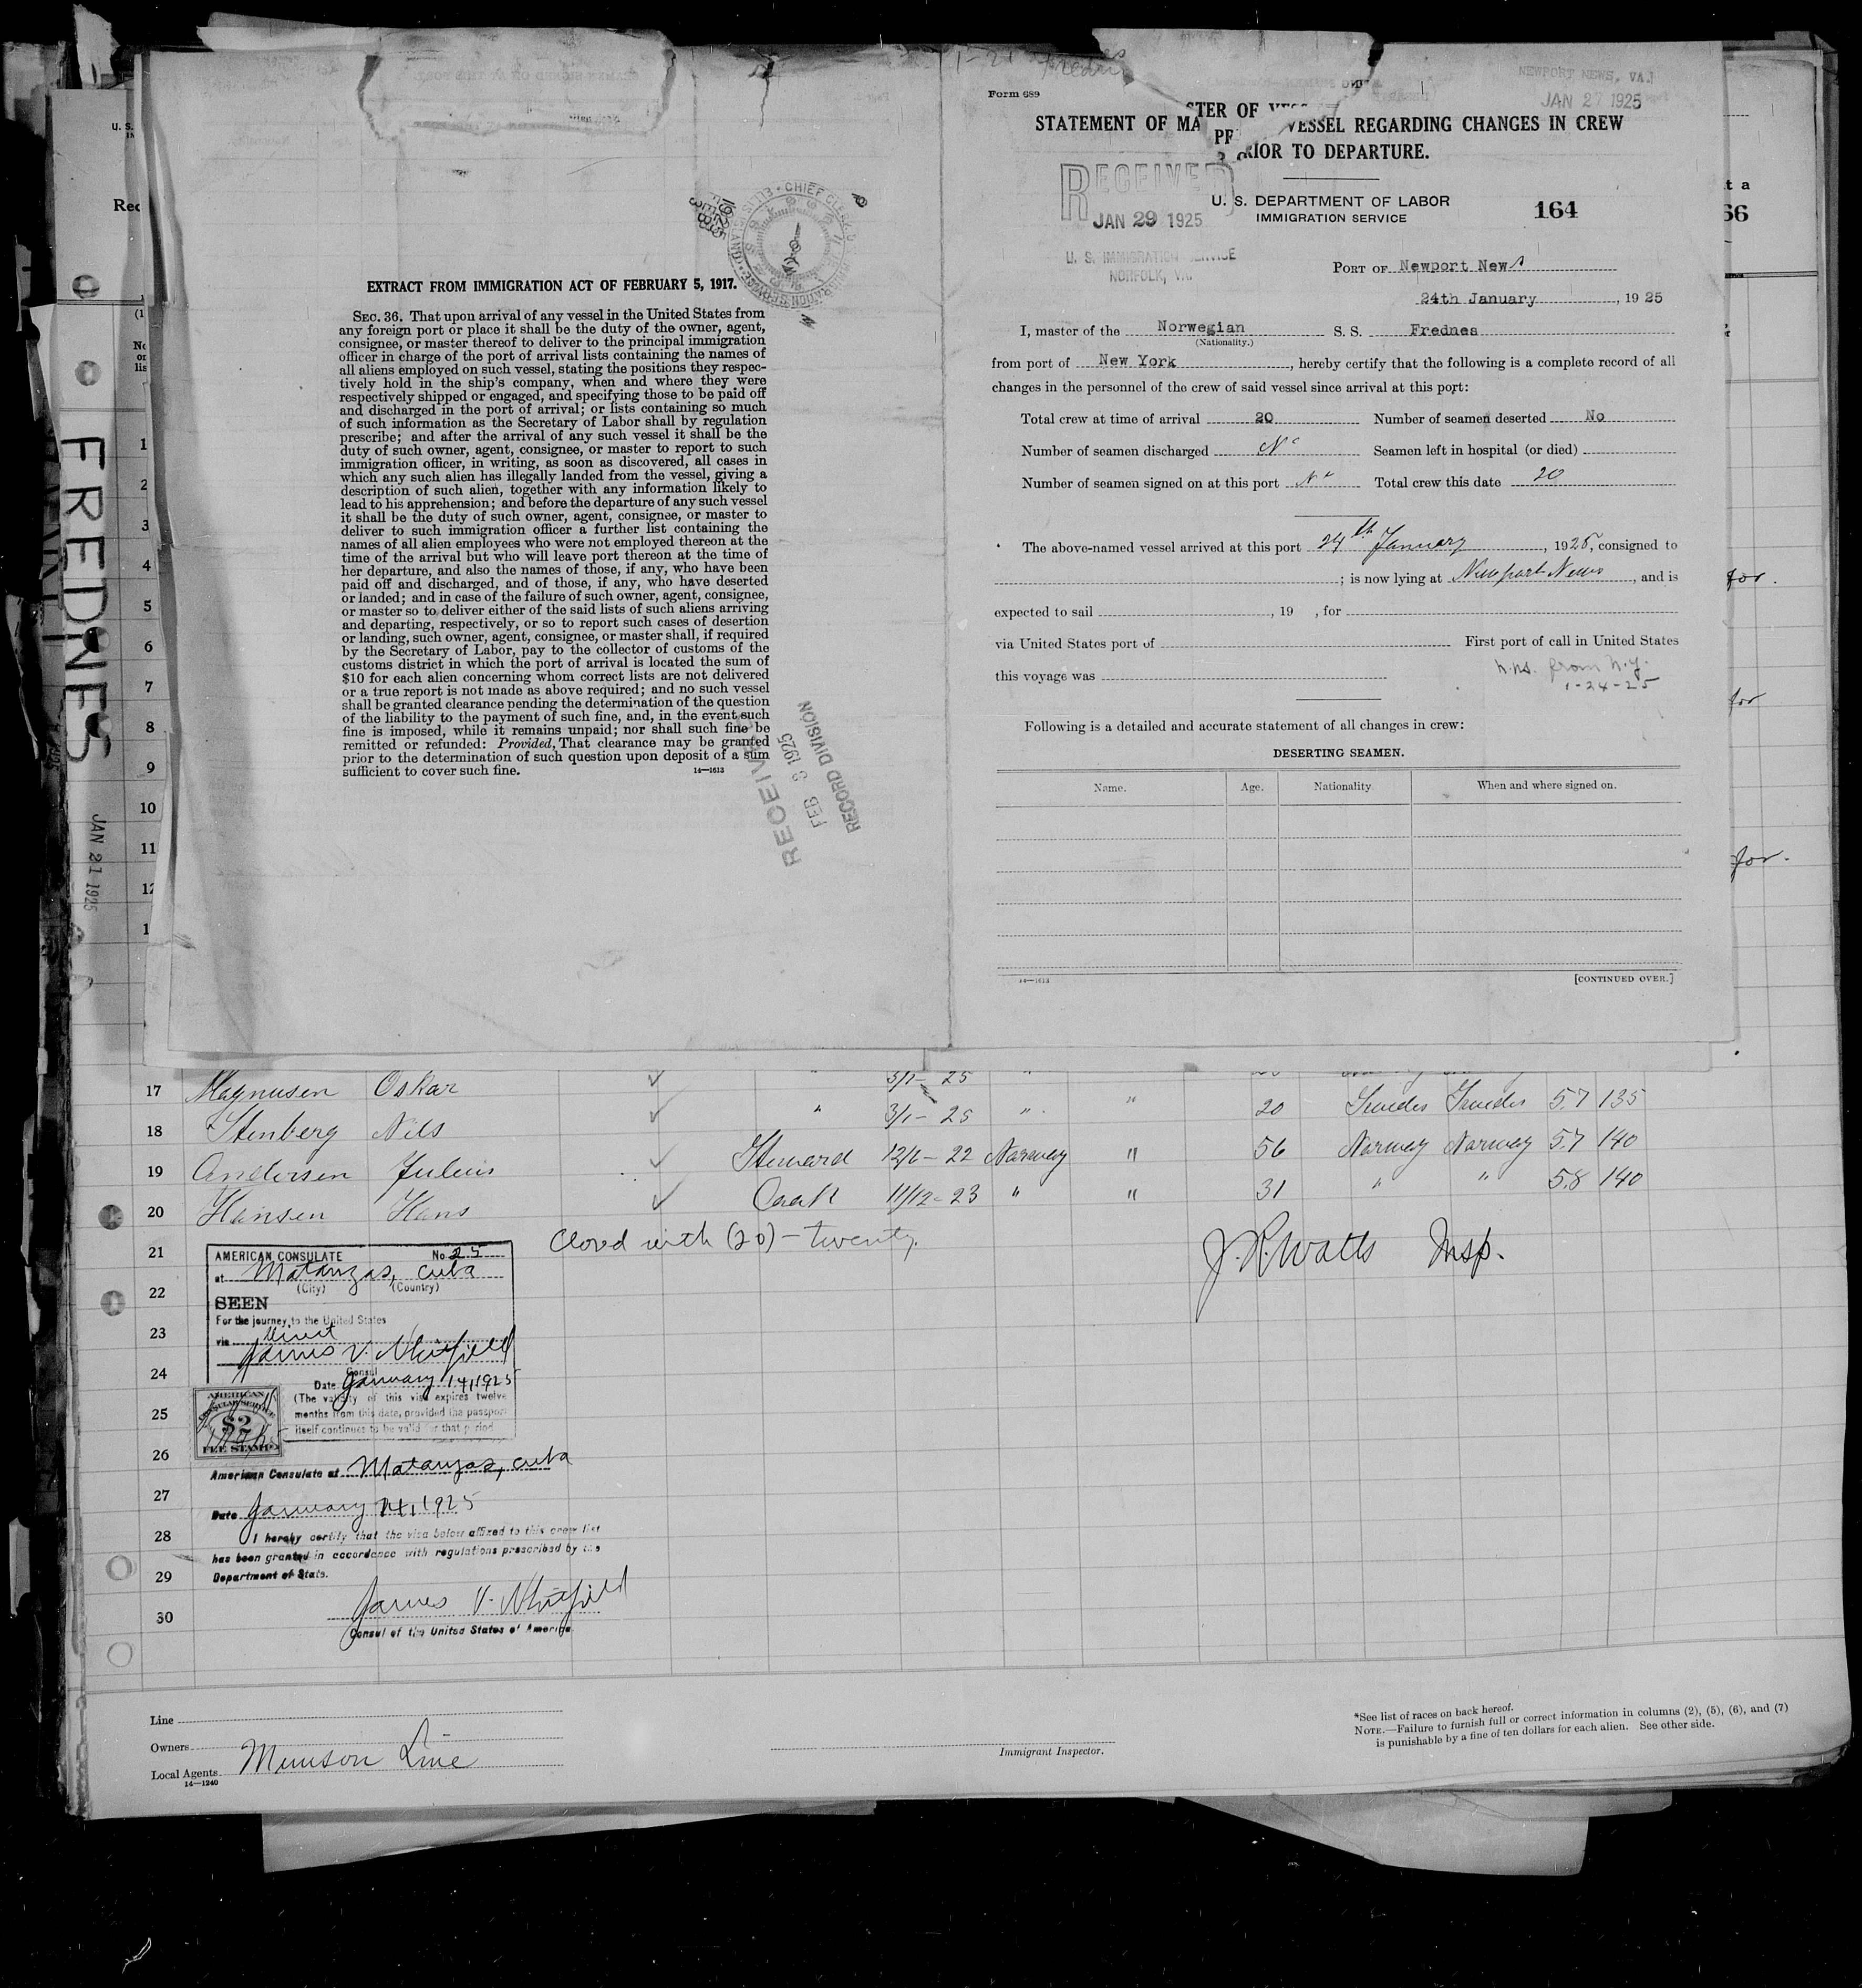 FREDNES
JAN 21 1925
EXTRACT FROM IMMIGRATION ACT OF FEBRUARY 5, 1917.
SEC. 36. That upon arrival of any vessel in the United States from
any foreign port or place it shall be the duty of the owner, agent,
consignee, or master thereof to deliver to the principal immigration
officer in charge of the port of arrival lists containing the names of
all aliens employed on such vessel, stating the positions they respec-
tively hold in the ship's company, when and where they were
respectively shipped or engaged, and specifying those to be paid off
and discharged in the port of arrival; or lists containing so much
of such information as the Secretary of Labor shall by regulation
prescribe; and after the arrival of any such vessel it shall be the
duty of such owner, agent, consignee, or master to report to such
immigration officer, in writing, as soon as discovered, all cases in
which any such alien has illegally landed from the vessel, giving a
description of such alien, together with any information likely to
lead to his apprehension; and before the departure of any such vessel
it shall be the duty of such owner, agent, consignee, or master to
deliver to such immigration officer a further list containing the
names of all alien employees who were not employed thereon at the
time of the arrival but who will leave port thereon at the time of
her departure, and also the names of those, if any, who have been
paid off and discharged, and of those, if any, who have deserted
or landed; and in case of the failure of such owner, agent, consignee,
or master so to deliver either of the said lists of such aliens arriving
and departing, respectively, or so to report such cases of desertion
or landing, such owner, agent, consignee, or master shall, if required
by the Secretary of Labor, pay to the collector of customs of the
customs district in which the port of arrival is located the sum of
$10 for each alien concerning whom correct lists are not delivered
or a true report is not made as above required; and no such vessel
shall be granted clearance pending the determination of the question
of the liability to the payment of such fine, and, in the event such
fine is imposed, while it remains unpaid; nor shall such fine be
remitted or refunded: Provided, That clearance may be granted
prior to the determination of such question upon deposit of a sum
sufficient to cover such fine.
14—1613
RECEIVED
FEB 3 1925
RECORD DIVISION
Form 689
NEWPORT NEWS, VA.
JAN 27 1925
STATEMENT OF MASTER OF VESSEL REGARDING CHANGES IN CREW
PRIOR TO DEPARTURE.
RECEIVED
JAN 29 1925
U. S. IMMIGRATION SERVICE
NORFOLK, VA.
U. S. DEPARTMENT OF LABOR
IMMIGRATION SERVICE
164
PORT OF Newport News
24th January, 1925
I, master of the Norwegian S. S. Frednes
(Nationality.)
from port of New York, hereby certify that the following is a complete record of all
changes in the personnel of the crew of said vessel since arrival at this port:
Total crew at time of arrival 20 Number of seamen deserted No
Number of seamen discharged No Seamen left in hospital (or died)
Number of seamen signed on at this port No Total crew this date 20
The above-named vessel arrived at this port 24th January, 1925, consigned to
; is now lying at Newport News, and is
expected to sail , 19 , for
via United States port of First port of call in United States
this voyage was
n.ns. from n.y.
1-24-25
Following is a detailed and accurate statement of all changes in crew:
DESERTING SEAMEN.
Name. Age. Nationality When and where signed on.
14—1613 [CONTINUED OVER.]
66
for.
for
for.
1
2
3
4
5
6
7
8
9
10
11
12
17 Magnusen Oskar " 3/1- 25 " "
18 Stenberg Nils " 3/1- 25 " " 20 Sweden Sweden 5.7 135
19 Andersen Julius Steward 12/6- 22 Norway " 56 Norway Norway 5.7 140
20 Hansen Hans Cook 11/12- 23 " " 31 " " 5.8 140
21 Closed with (20) - twenty. J.R. Watts Insp.
22
23
24
25
26
27
28
29
30
AMERICAN CONSULATE No 25
at Matanzas, Cuba
(City) (Country)
SEEN
For the journey to the United States
via direct
James V. Whitfield
Consul
Date January 14, 1925
(The validity of this visa expires twelve
months from this date, provided the passport
itself continues to be valid for that period.
AMERICAN
CONSULAR SERVICE
$2
FEE STAMP
American Consulate at Matanzas, Cuba
Date January 14, 1925
I hereby certify that the visa below affixed to this crew list
has been granted in accordance with regulations prescribed by the
Department of State.
James V. Whitfield
Consul of the United States of America
Line
Owners
Local Agents Munson Line
14—1240
Immigrant Inspector.
*See list of races on back hereof.
NOTE.—Failure to furnish full or correct information in columns (2), (5), (6), and (7)
is punishable by a fine of ten dollars for each alien. See other side.